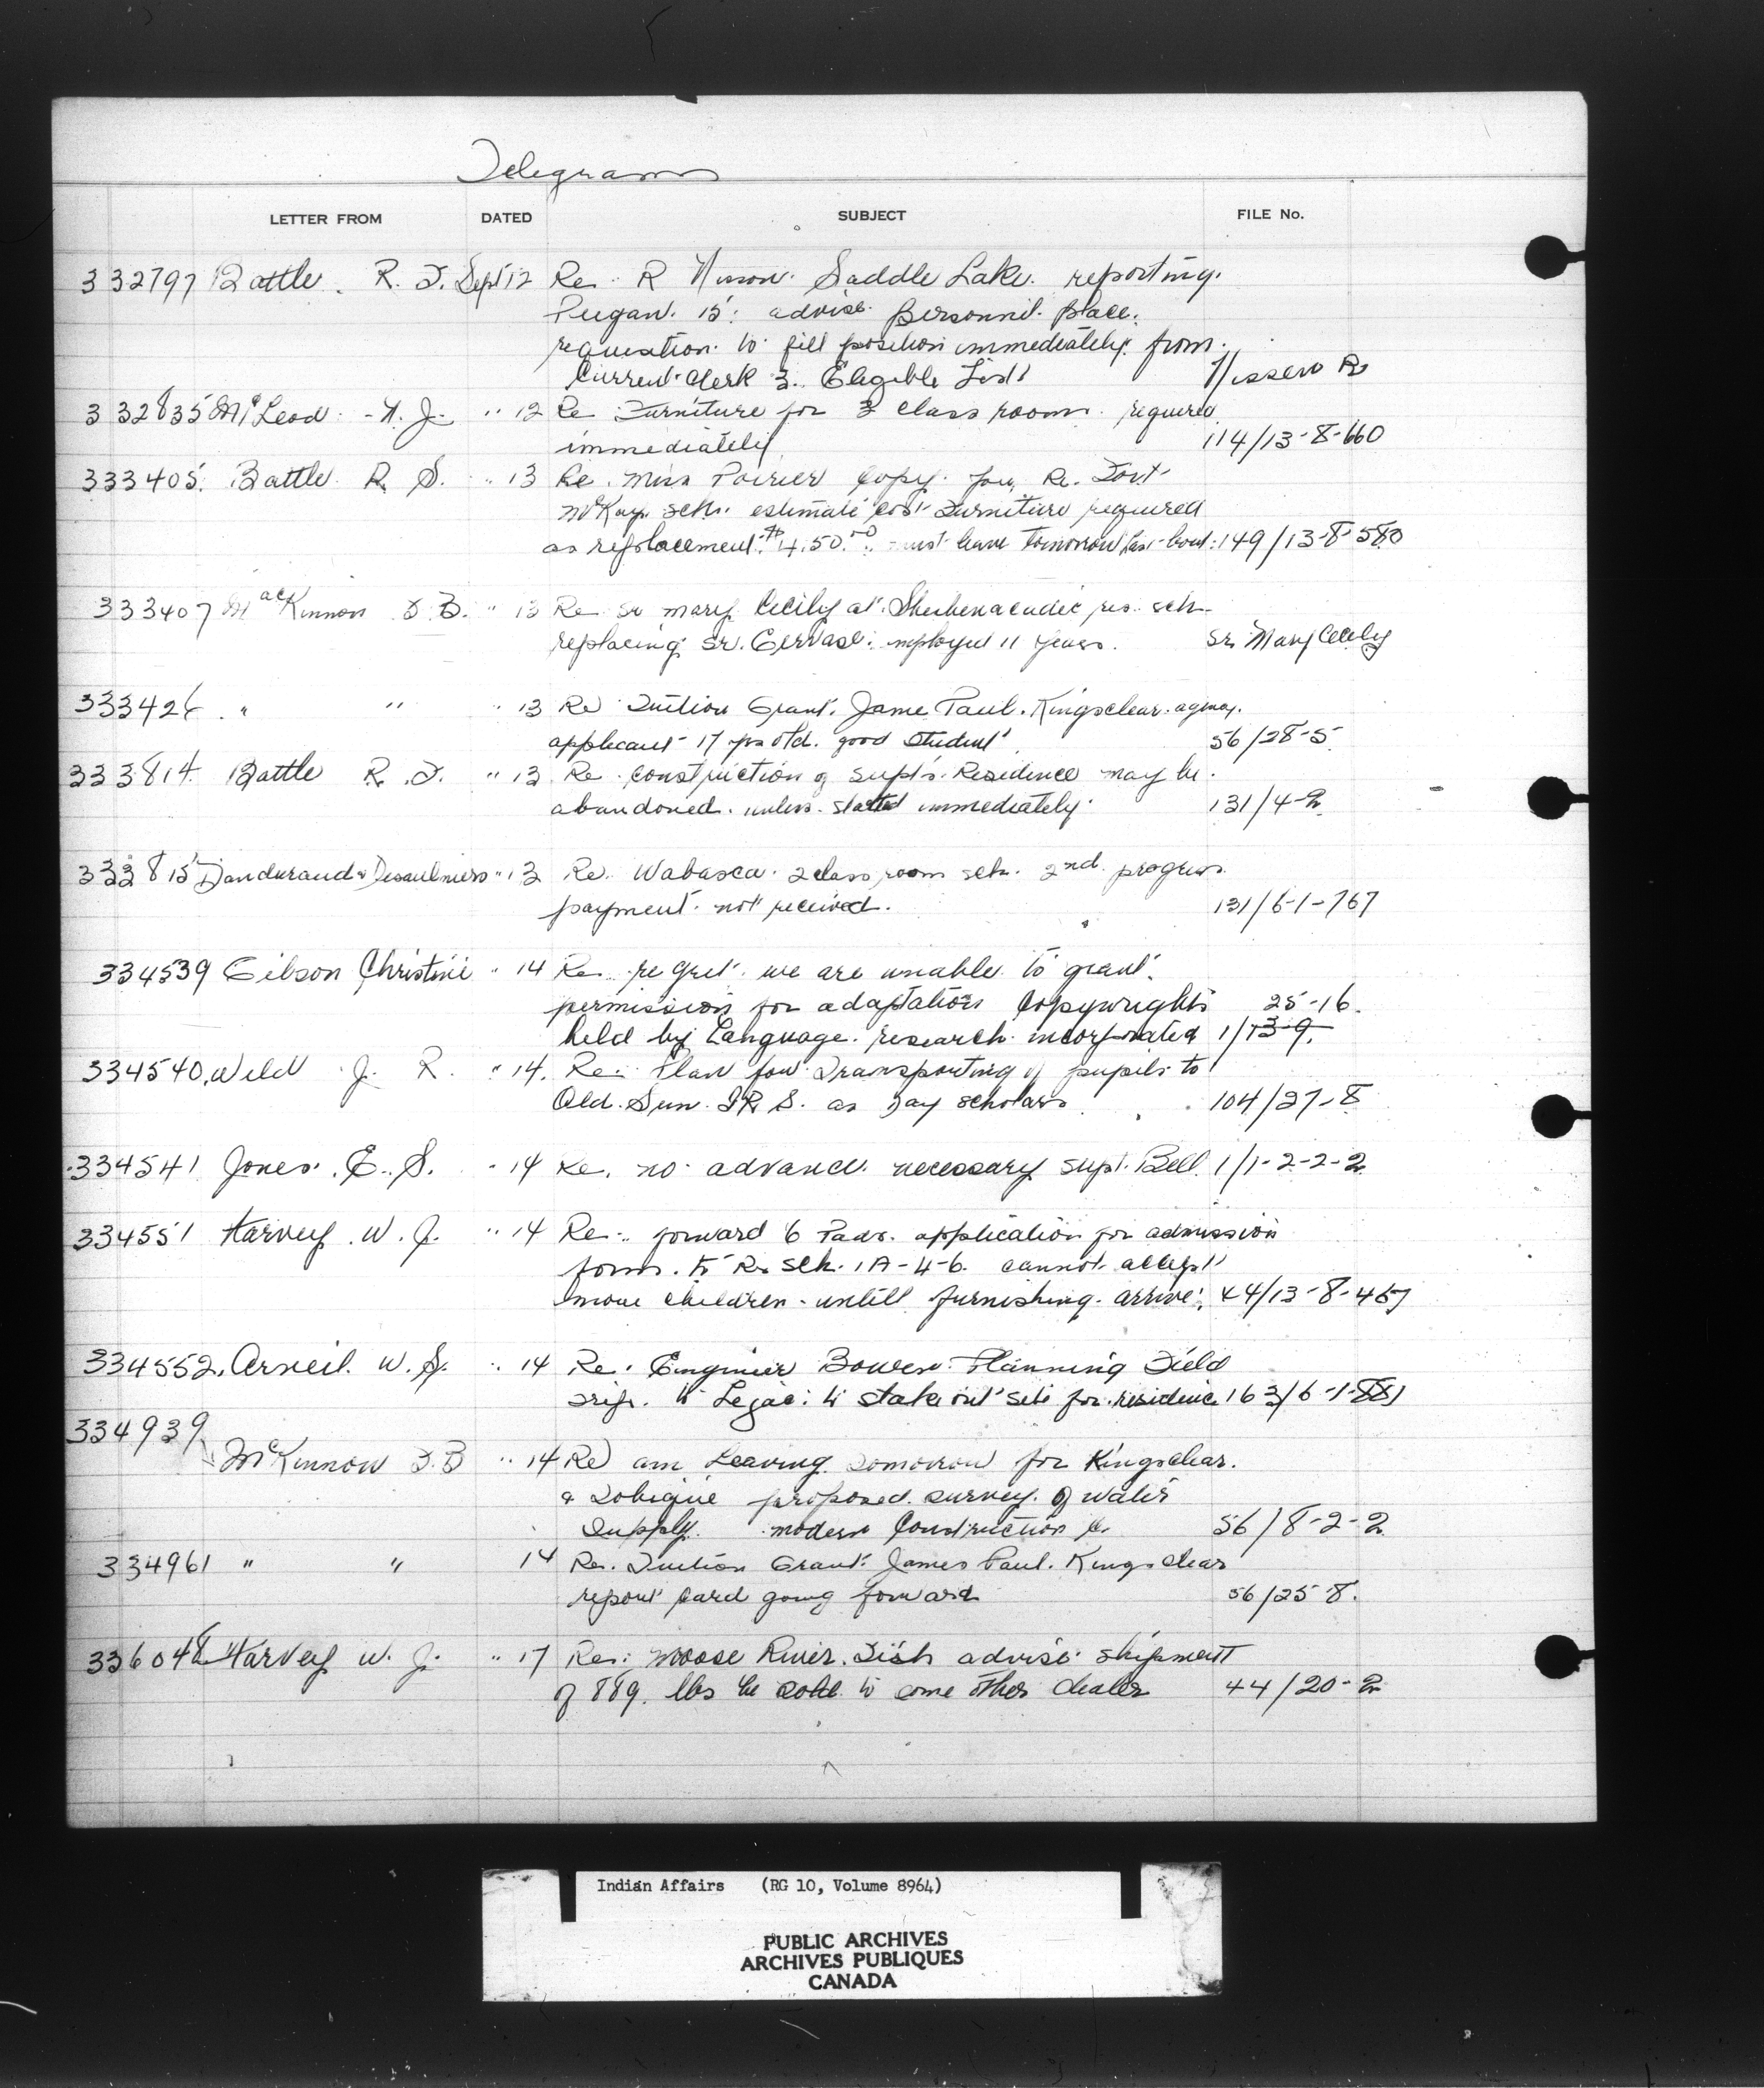 Telegrams
LETTER FROM DATED SUBJECT FILE No.
332797 Battle. R. D. Sept 12 Re. R Nisson. Saddle Lake. reporting.
Peigan. 15. advise personnil. place.
requestion to fill position immediately from.
Current clerk 3. Eligible List Nissen R
332835 McLeod - A. J. " 12 Re Furniture for 3 class rooms. required
immediately 114/13-8-160
333405. Battle R. S. " 13 Re. Miss Poirier Copy. for Re. Fort
McKay. sch. estimate cost Furniture required
as replacement. $450.00 must leave tomorrow last boat. 149/13-8-580
333407 MacKinnon F. B. " 13 Re Sr Mary Cecily at. Shubenacadie res. sch
replacing Sr. Gervase. employed 11 years. Sr. Mary Cecily
333426 " " " 13 Re Tuition Grant. Jame Paul. Kingsclear. agency.
applicant 17 yrs old. good student. 56/28-5
333814 Battle R. D. " 13 Re. construction of supt's. Residence may be.
abandoned. unless. started immediately. 131/4-2
333815 Dandurand & Desaulniers " 13 Re. Wabasca. 2 class room sch. 2nd progress.
payment. not received. 131/6-1-767
334539 Gibson Christine " 14 Re. regret. we are unable to grant.
permission for adaptation Copywrights 25-16.
held by Language. research. incorporated 1/13-9.
334540. Weld J. R. " 14. Re. Plan for Transporting of pupils to
Old. Sun. I R. S. as Day scholars. 104/27-8
334541 Jones. E. S. " 14 Re. no advance. necessary supt. Bell. 1/1-2-2-2
334551 Harvey. W. J. " 14 Re. forward 6 Pads. application for admission
form. to Re. sch. 1A-4-6. cannot accept
more children - untill furnishing. arrive. 44/13-8-467
334552. Arneil. W. S. " 14 Re. Engineer Bowen. Planning Field
trip. to Lejac: to stake out site for residence 163/6-1-881
334939
McKinnon F. B " 14 Re am Leaving Tomorrow for Kingsclear.
& Tobique proposed. survey. of water
Supply. modern Construction 56/8-2-2
334961 " " 14 Re. Tuition Grant. James Paul. Kingsclear
report card going forward 56/25-8.
336048 Harvey W. J. " 17 Re: Moose River. Fish advise shipment
of 889. lbs be sold to some other dealer 44/20-2
Indian Affairs (RG 10, Volume 8964)
PUBLIC ARCHIVES
ARCHIVES PUBLIQUES
CANADA